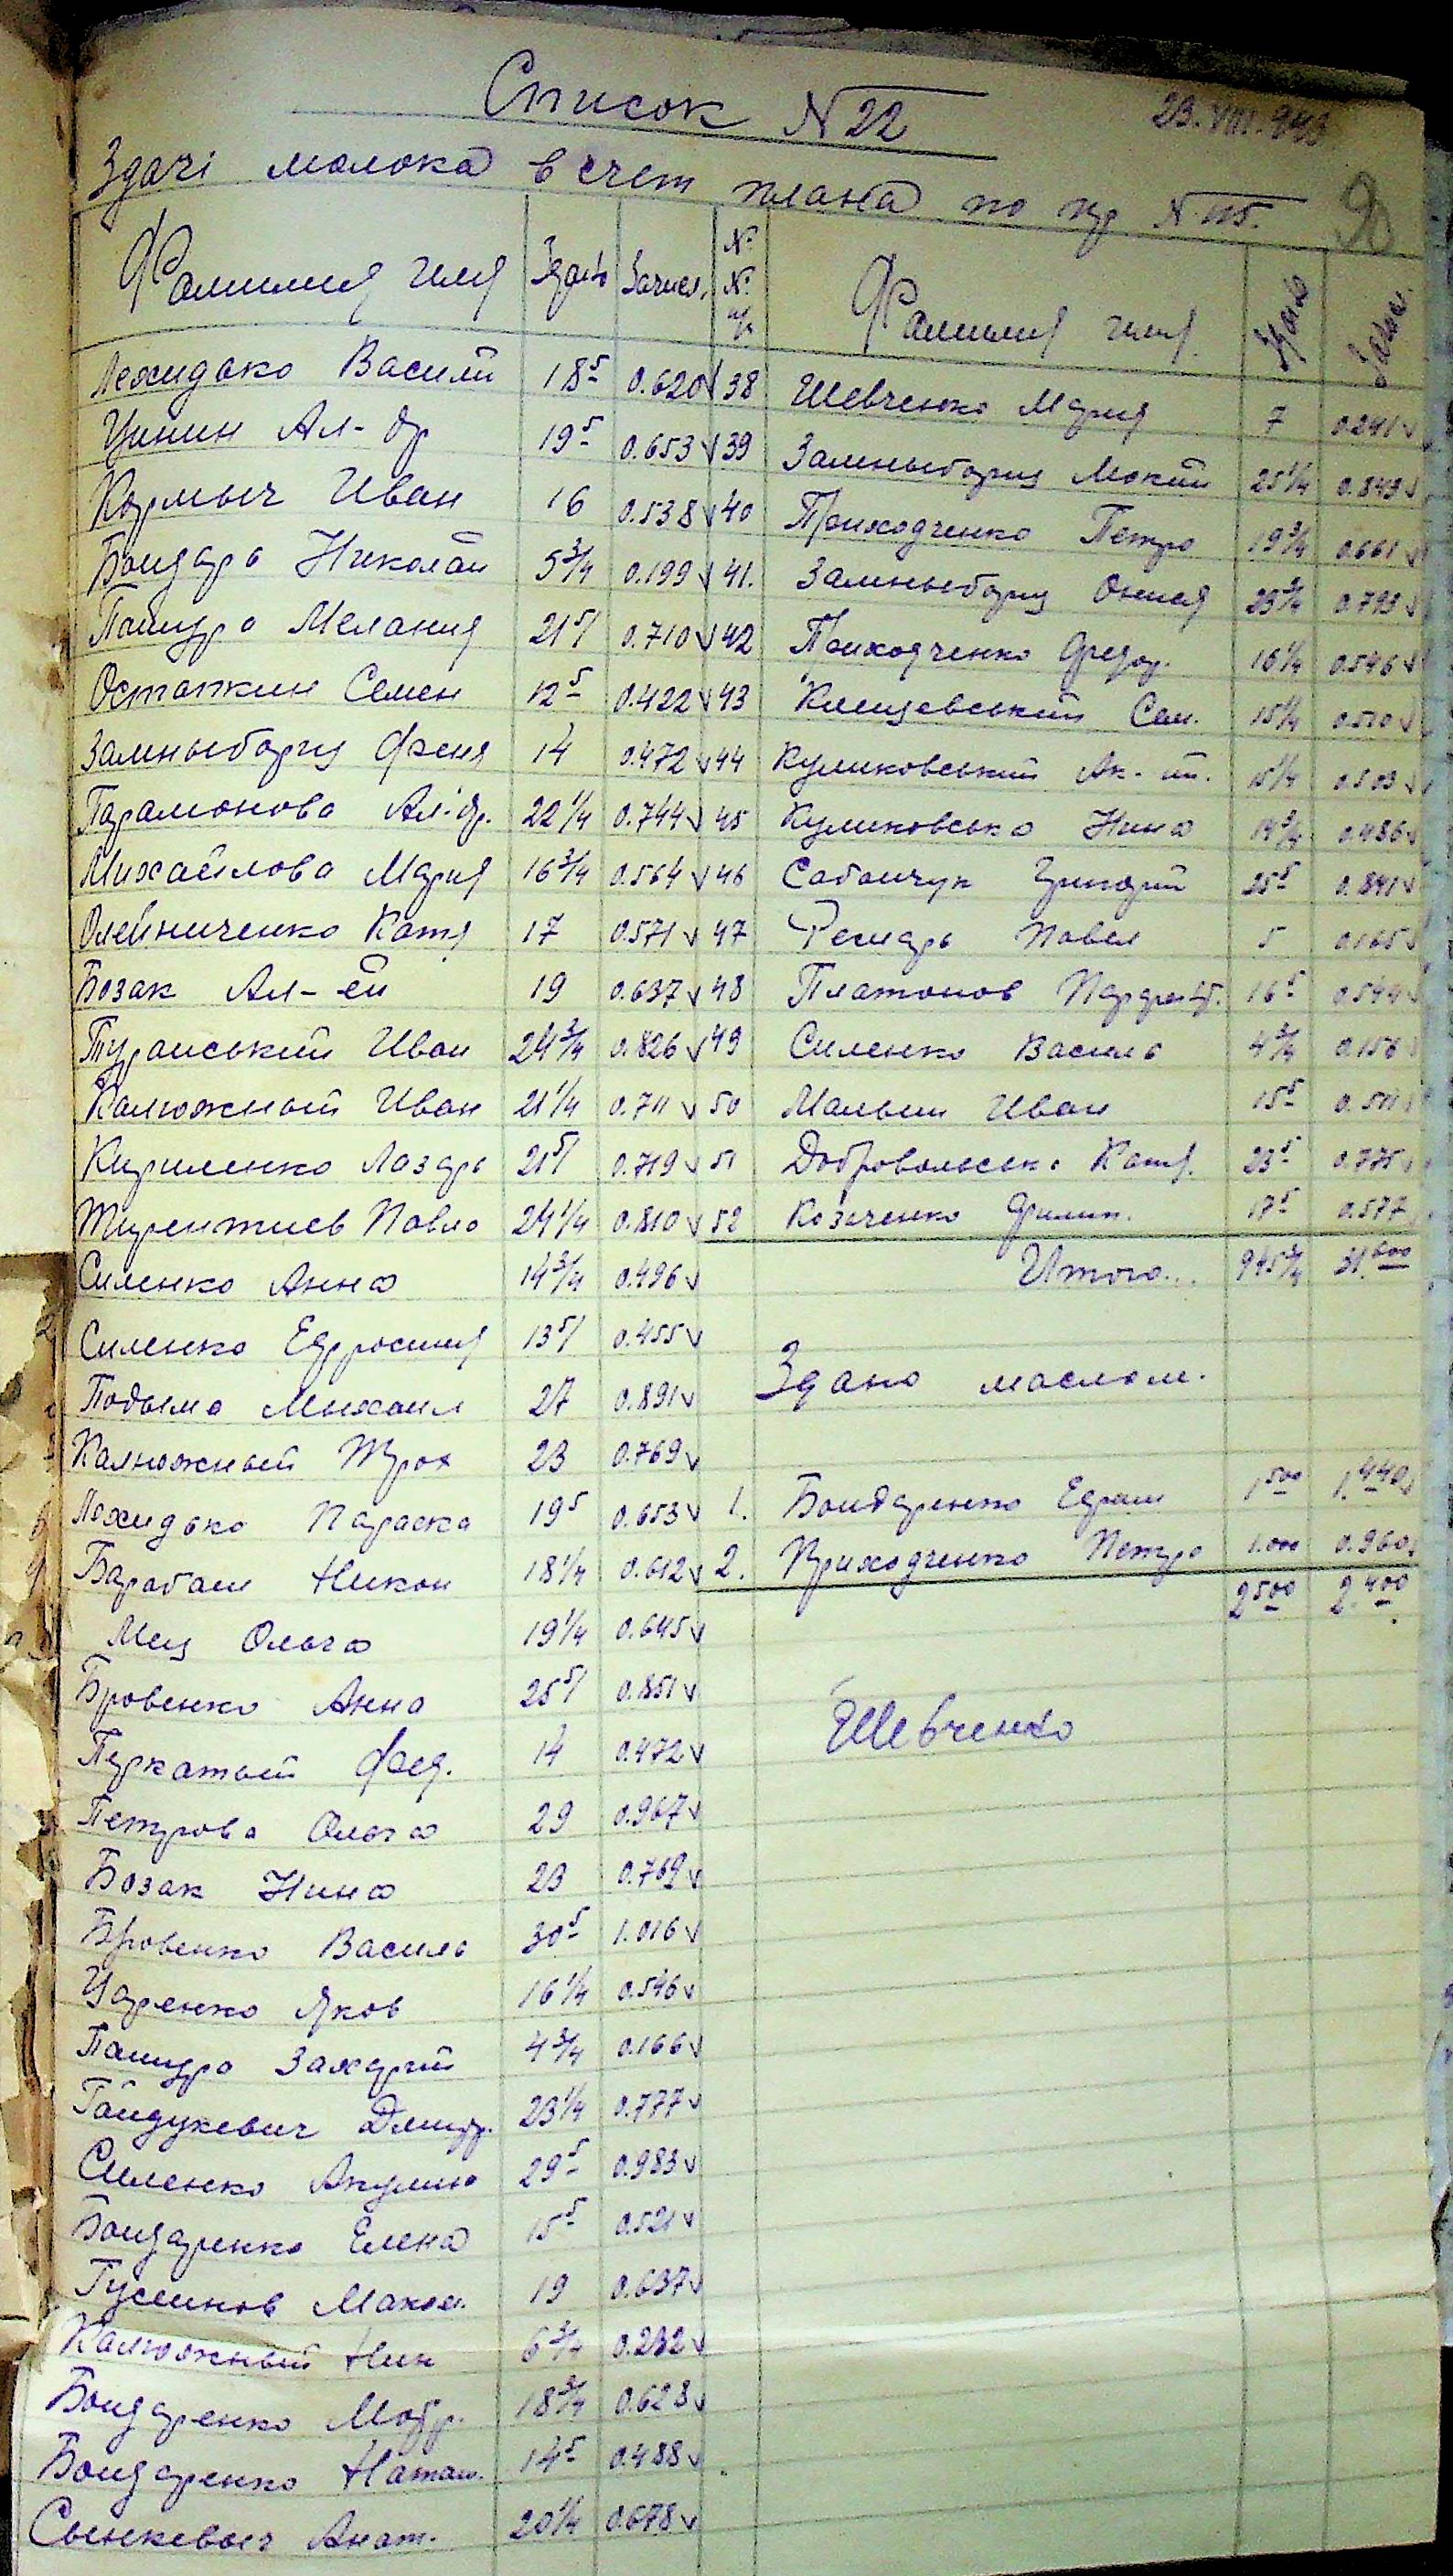 Список N 22
23.VIII.943
Здачі молока в счет плана по кр N 115.
Фамилия имя Здано Зачисл.
Лехидько Василий 18⁵ 0.620
Цинин Ал-др 19⁵ 0.653
Кармыч Иван 16 0.538
Бондарь Николай 5 3/4 0.199
Пашура Мелания 21⁵ 0.710
Остапкин Семен 12⁵ 0.422
Замныборщ Феня 14 0.472
Парамонова Ал-др. 22 1/4 0.744
Михайлова Мария 16 3/4 0.564
Олейниченко Катя 17 0.571
Бозак Ал-ей 19 0.637
Туранський Иван 24 3/4 0.826
Калюжный Иван 21 1/4 0.711
Кириленко Лазарь 21⁵ 0.719
Тирентиев Павло 24 1/4 0.810
Силенко Анна 14 3/4 0.496
Силенко Ефросиния 13⁵ 0.455
Подыма Михаил 27 0.891
Калюжный Трох 23 0.769
Лехидько Параска 19⁵ 0.653
Барабаш Никон 18 1/4 0.612
Мец Ольга 19 1/4 0.645
Бровенко Анна 25⁵ 0.851
Пуркатый Фед. 14 0.472
Петрова Ольга 29 0.967
Бозак Нина 23 0.769
Бровенко Василь 30⁵ 1.016
Царенко Яков 16 1/4 0.546
Пашура Захарий 4 3/4 0.166
Гайдукевич Дмитр. 23 1/4 0.777
Силенко Акулина 29⁵ 0.983
Бондаренко Елена 15⁵ 0.521
Гусинов Максм. 19 0.637
Калюжный Ник 6 3/4 0.232
Бондаренко Мотр. 18 3/4 0.628
Бондаренко Наташ. 14⁵ 0.488
Сынкевыч Анат. 20 1/4 0.678
N N п/п Фамилия имя Здано Зачис.
38 Шевченко Мария 7 0.241
39 Замныборщ Мокий 25 1/4 0.843
40 Приходченко Петро 19 3/4 0.661
41. Замныборщ Онися 23 3/4 0.793
42 Приходченко Федор. 16 1/4 0.546
43 Клищевський Сем. 15 1/4 0.510
44 Куликовський Ак-ий. 15 1/4 0.503
45 Куликовська Нина 14 3/4 0.486
46 Сабанчук Григорий 25⁵ 0.841
47 Ремарь Павел 5 0.165
48 Платонов Парфент. 16⁵ 0.544
49 Силенко Василь 4 3/4 0.156
50 Малыш Иван 15⁵ 0.511
51 Добровольськ. Катя. 23⁵ 0.775
52 Козаченко Филип. 17⁵ 0.577
Итого... 945 3/4 31.600
Здано маслом.
1. Бондаренко Ефим 1⁵⁰⁰ 1.440
2. Приходченко Петро 1.000 0.960
2⁵⁰⁰ 2.400
Шевченко